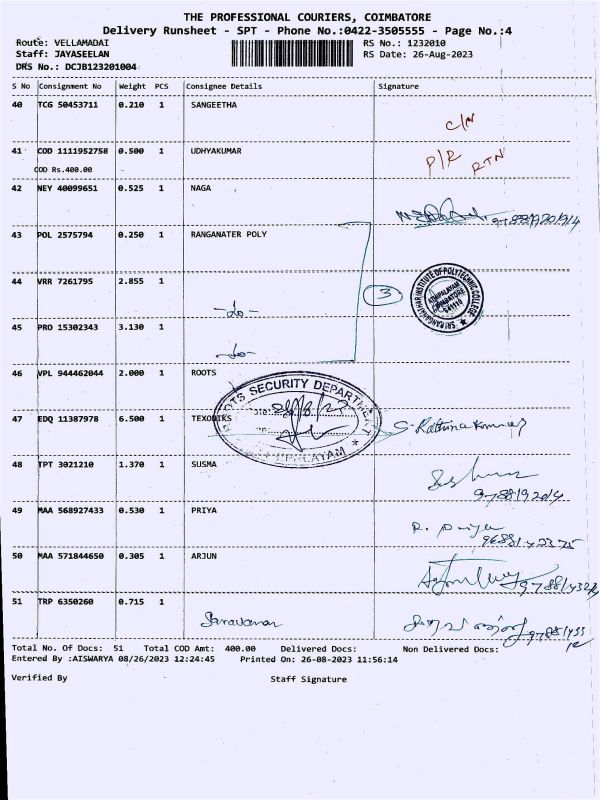 THE PROFESSIONAL COURIERS, COIMBATORE
Delivery Runsheet - SPT - Phone No.:0422-3505555 - Page No.:4
Route: VELLAMADAI RS No.: 1232010
Staff: JAYASEELAN RS Date: 26-Aug-2023
DRS No.: DCJB123201004
S No Consignment No Weight PCS Consignee Details Signature
40 TCG 50453711 0.210 1 SANGEETHA
C/N
41 COD 1111952758 0.500 1 UDHYAKUMAR P/R RTN
COD Rs.400.00
42 NEY 40099651 0.525 1 NAGA
43 POL 2575794 0.250 1 RANGANATER POLY
44 VRR 7261795 2.855 1
3
SRI RANGANATHAR INSTITUTE OF POLYTECHNIC COLLEGE
ATHIPALAYAM
COIMBATORE
641110
-do-
45 PRO 15302343 3.130 1
-do-
46 VPL 944462044 2.000 1 ROOTS
ROOTS SECURITY DEPARTMENT
47 EDQ 11387978 6.500 1 TEXONIKS S. Rathinakumar
48 TPT 3021210 1.370 1 SUSMA
49 MAA 568927433 0.530 1 PRIYA
R. Priya
50 MAA 571844650 0.305 1 ARJUN
51 TRP 6350260 0.715 1
Saravanan
Total No. Of Docs: 51 Total COD Amt: 400.00 Delivered Docs: Non Delivered Docs:
Entered By :AISWARYA 08/26/2023 12:24:45 Printed On: 26-08-2023 11:56:14
Verified By Staff Signature